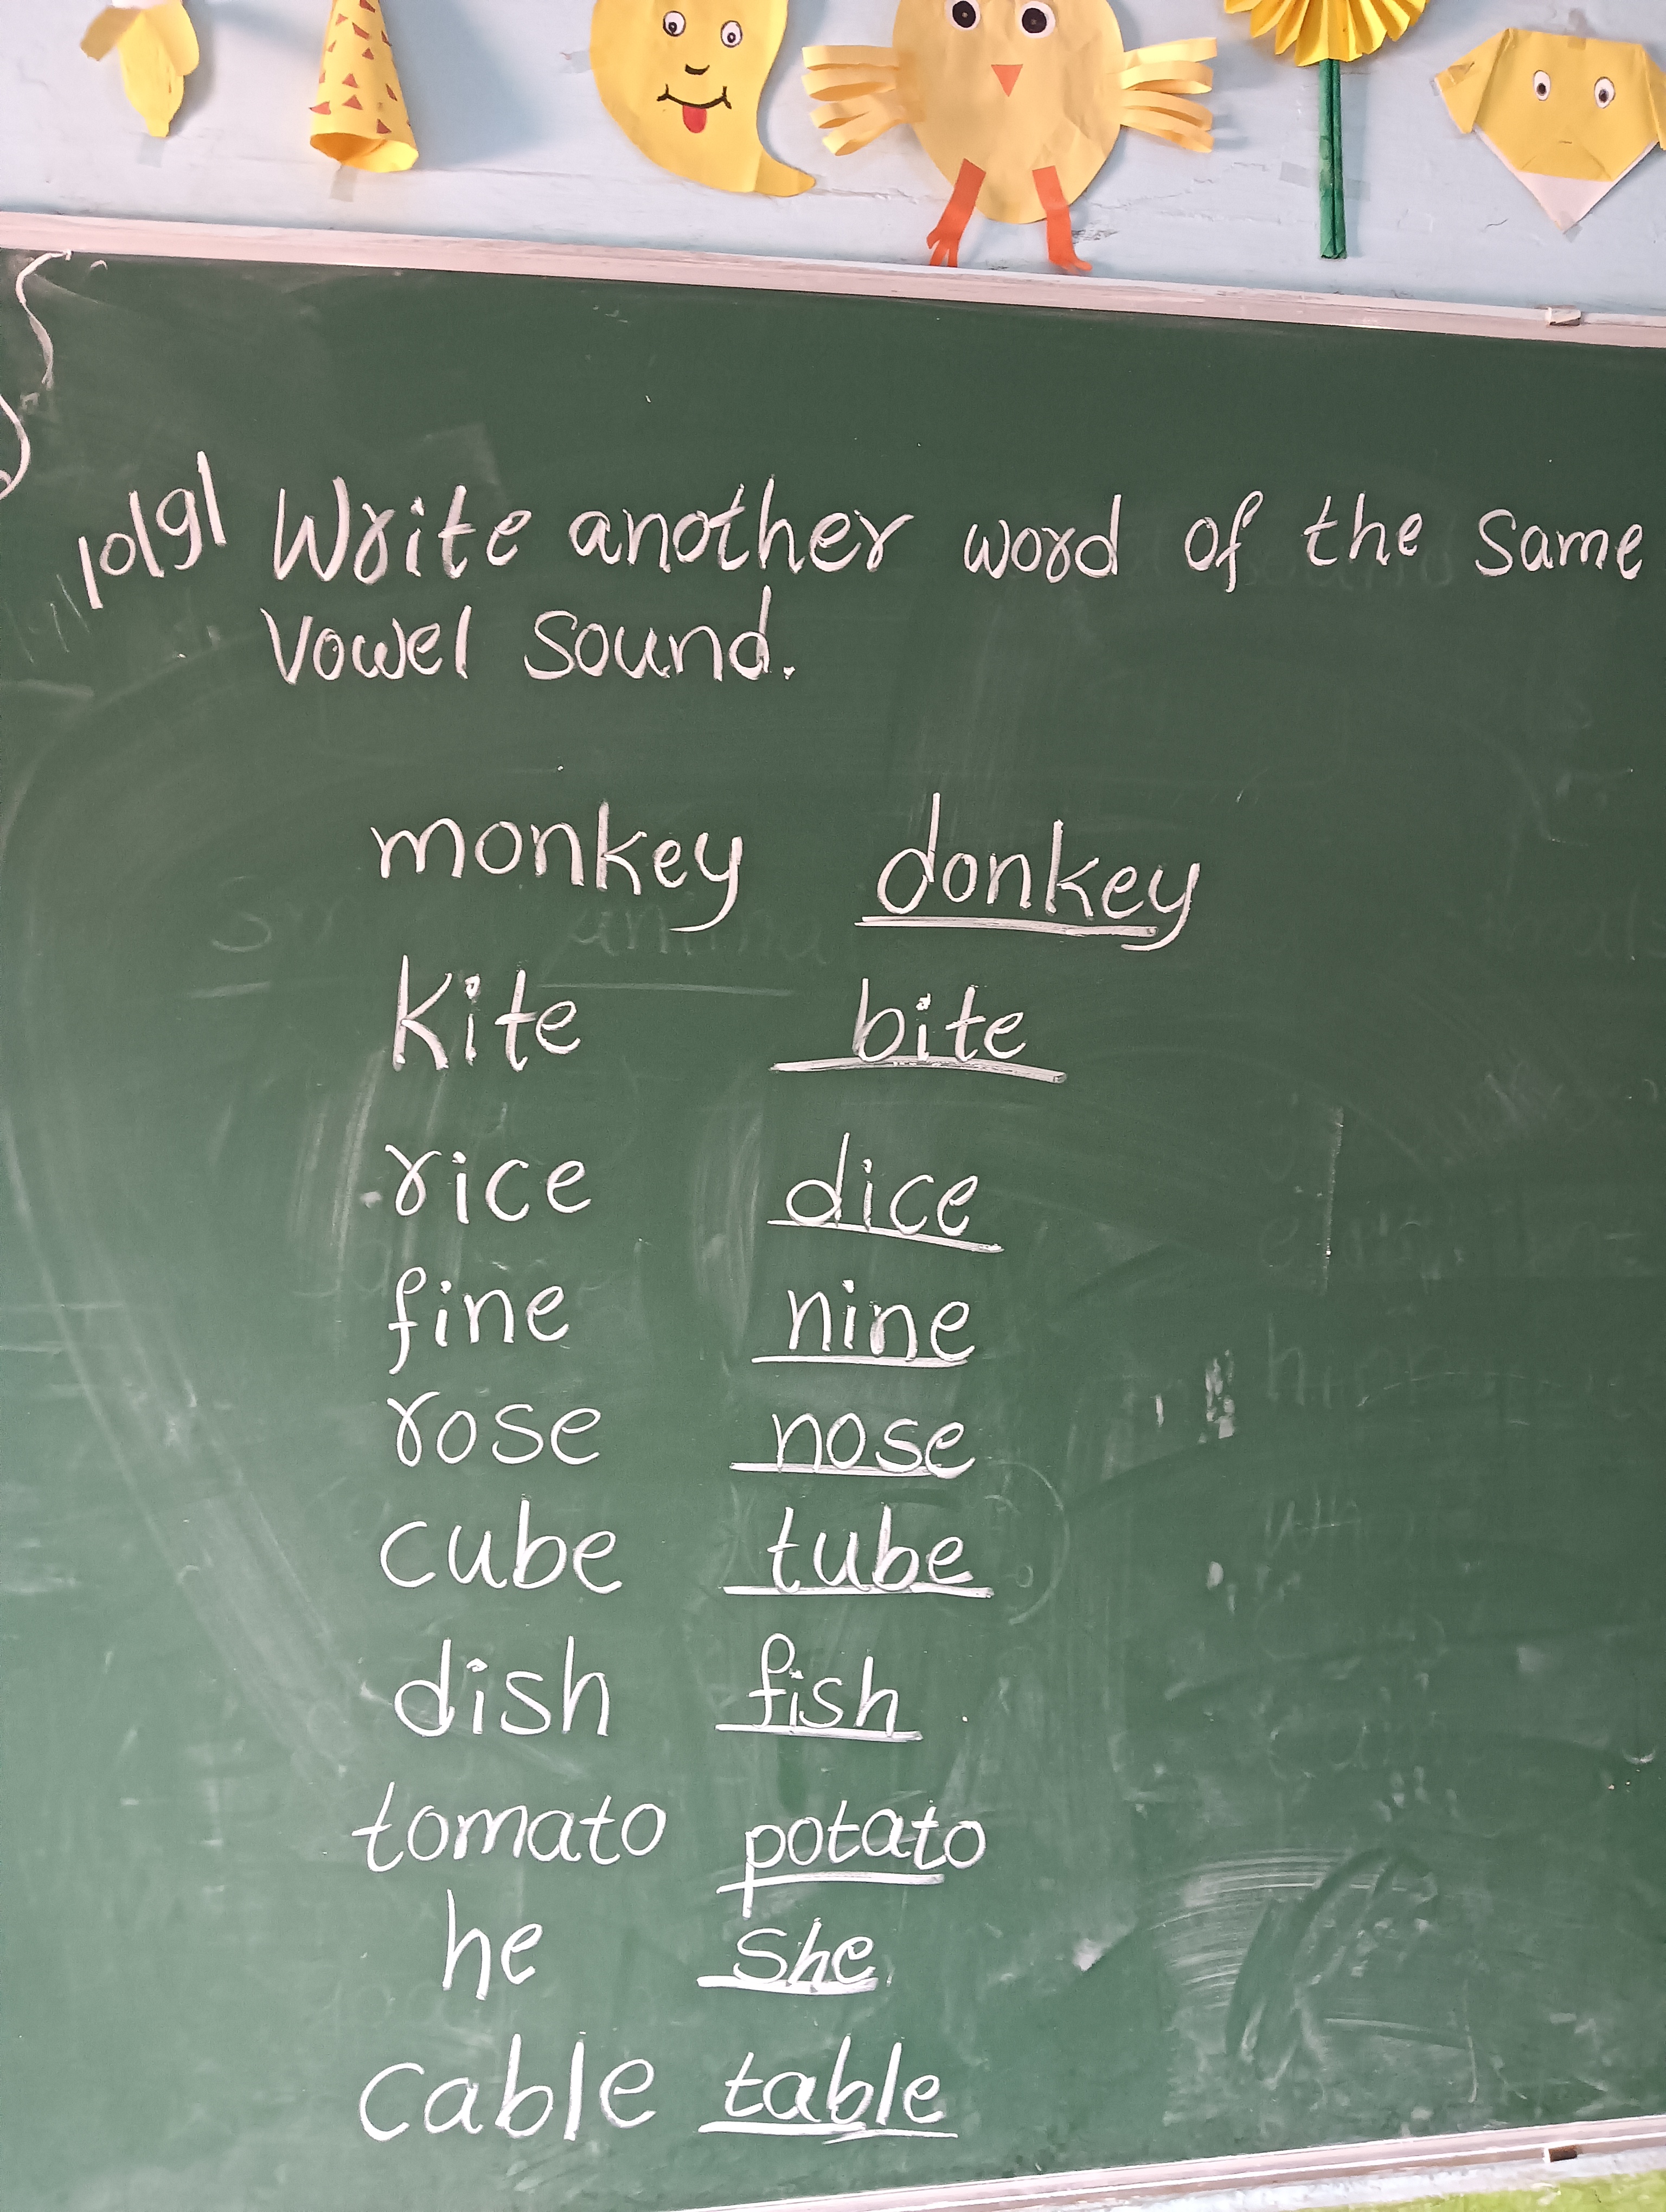 10/9/ Write another word of the same
vowel sound.
monkey donkey
kite bite
rice dice
fine nine
rose nose
cube tube
dish fish
tomato potato
he she
cable table